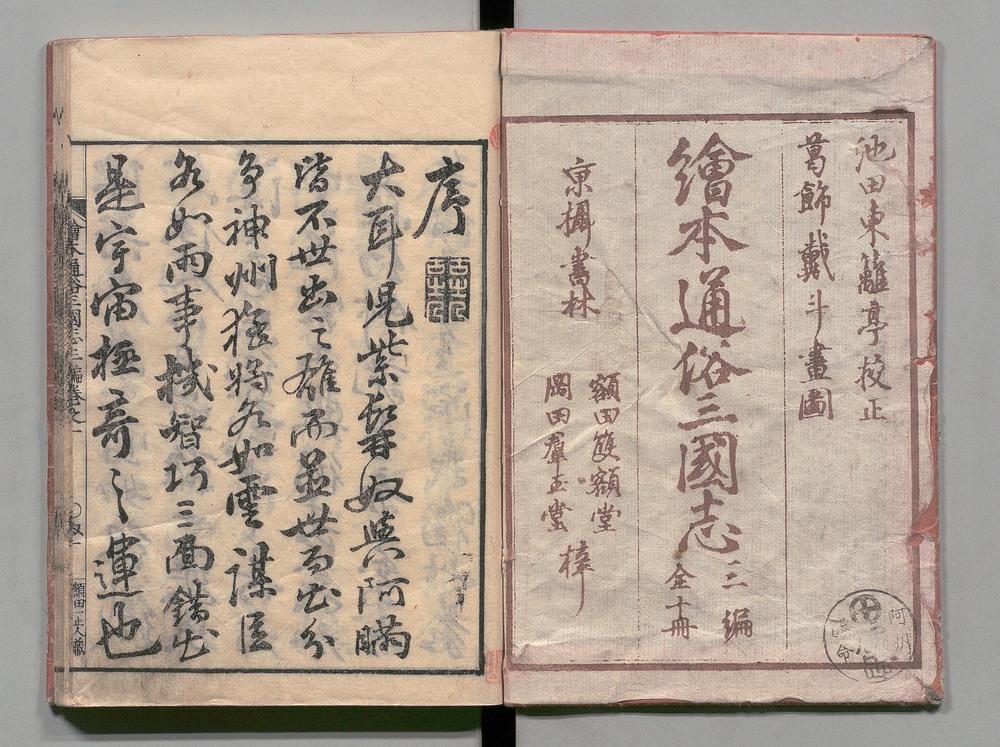 池田東籬亭校正
葛飾戴斗畫圖
繪本通俗三國志三編全十冊
京攝書林
額田雙額堂
岡田羣玉堂
梓
序
大耳兒紫髯奴與阿瞞
皆不世出之雄而並世而出分
爭神州猛將各如雲謀臣
各如雨事機智巧三面錯出
是宇宙極奇之運也
繪本通俗三國志三編卷之一
額田正三人藏